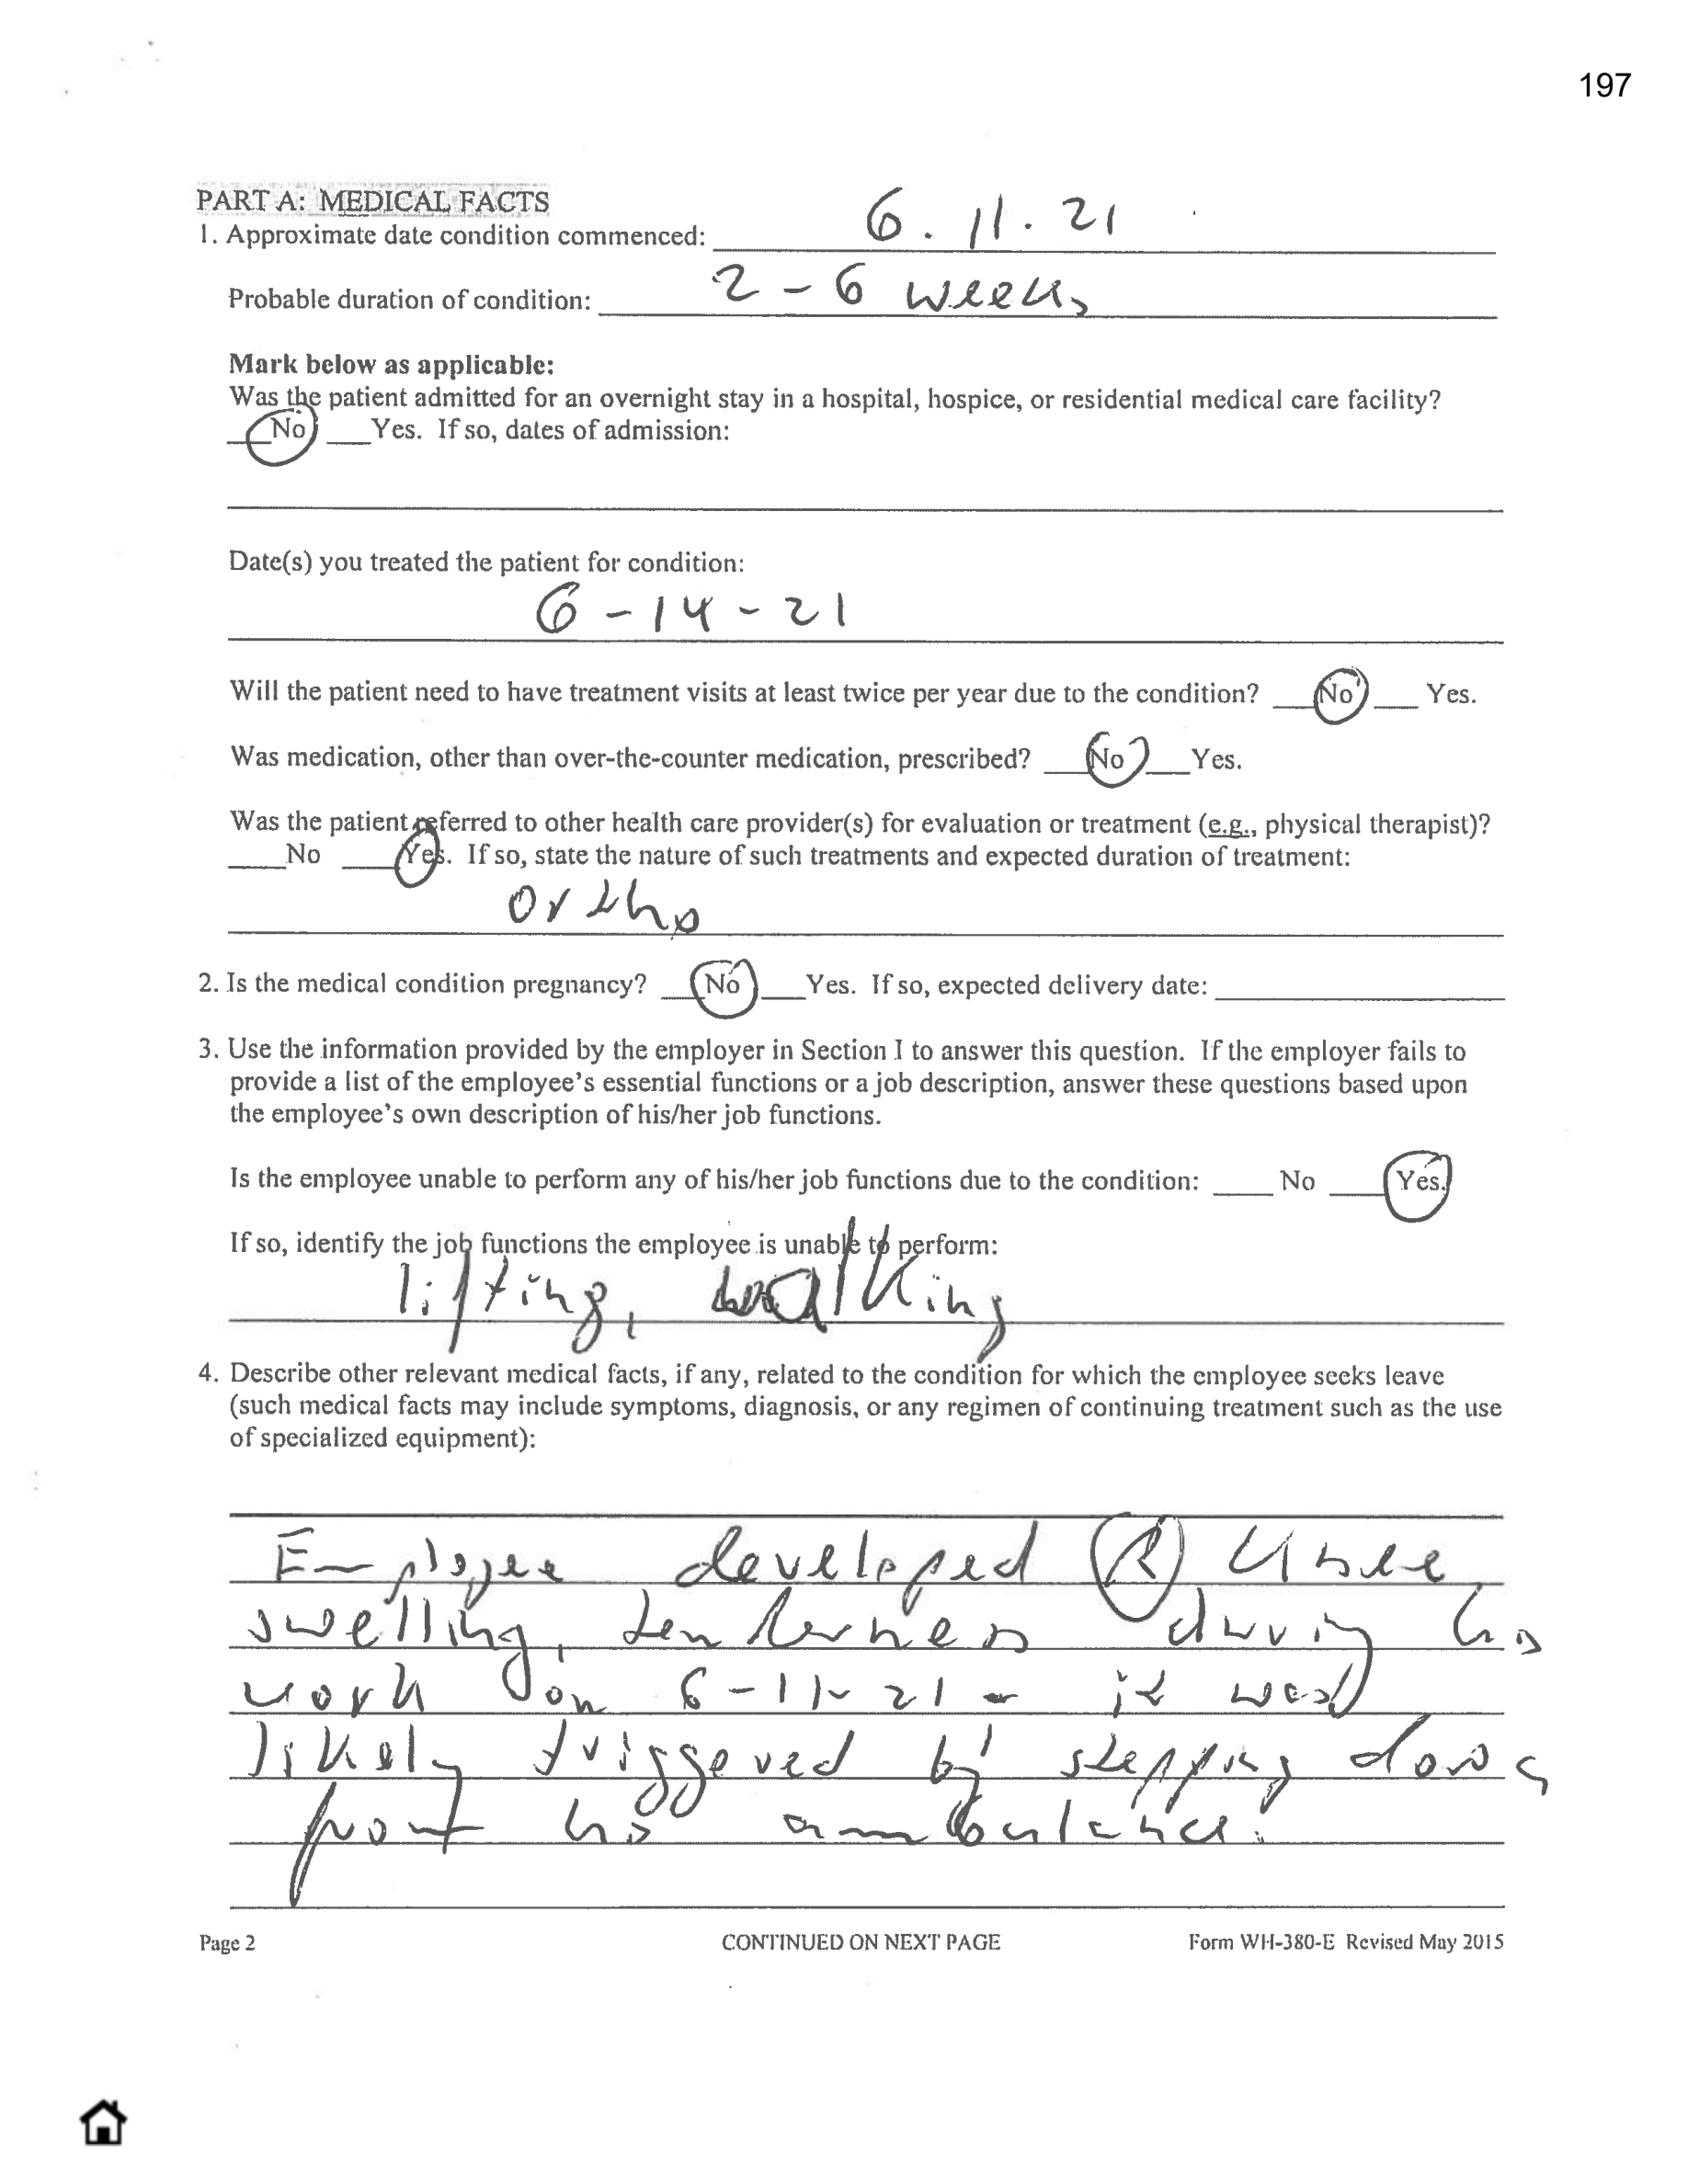 197
PART A: MEDICAL FACTS
1. Approximate date condition commenced: 6.11.21
Probable duration of condition: 2-6 weeks
Mark below as applicable:
Was the patient admitted for an overnight stay in a hospital, hospice, or residential medical care facility?
___No ___Yes. If so, dates of admission:
Date(s) you treated the patient for condition:
6-14-21
Will the patient need to have treatment visits at least twice per year due to the condition? ___No ___ Yes.
Was medication, other than over-the-counter medication, prescribed? ___No ___Yes.
Was the patient referred to other health care provider(s) for evaluation or treatment (e.g., physical therapist)?
____No ____Yes. If so, state the nature of such treatments and expected duration of treatment:
ortho
2. Is the medical condition pregnancy? ___No ___Yes. If so, expected delivery date: ____________________
3. Use the information provided by the employer in Section I to answer this question. If the employer fails to
provide a list of the employee's essential functions or a job description, answer these questions based upon
the employee's own description of his/her job functions.
Is the employee unable to perform any of his/her job functions due to the condition: ____ No ____ Yes.
If so, identify the job functions the employee is unable to perform:
lifting, walking
4. Describe other relevant medical facts, if any, related to the condition for which the employee seeks leave
(such medical facts may include symptoms, diagnosis, or any regimen of continuing treatment such as the use
of specialized equipment):
Employee developed (R) knee
swelling, tenderness during his
work on 6-11-21 - it was
likely triggered by stepping down
from his ambulance.
Page 2 CONTINUED ON NEXT PAGE Form WH-380-E Revised May 2015